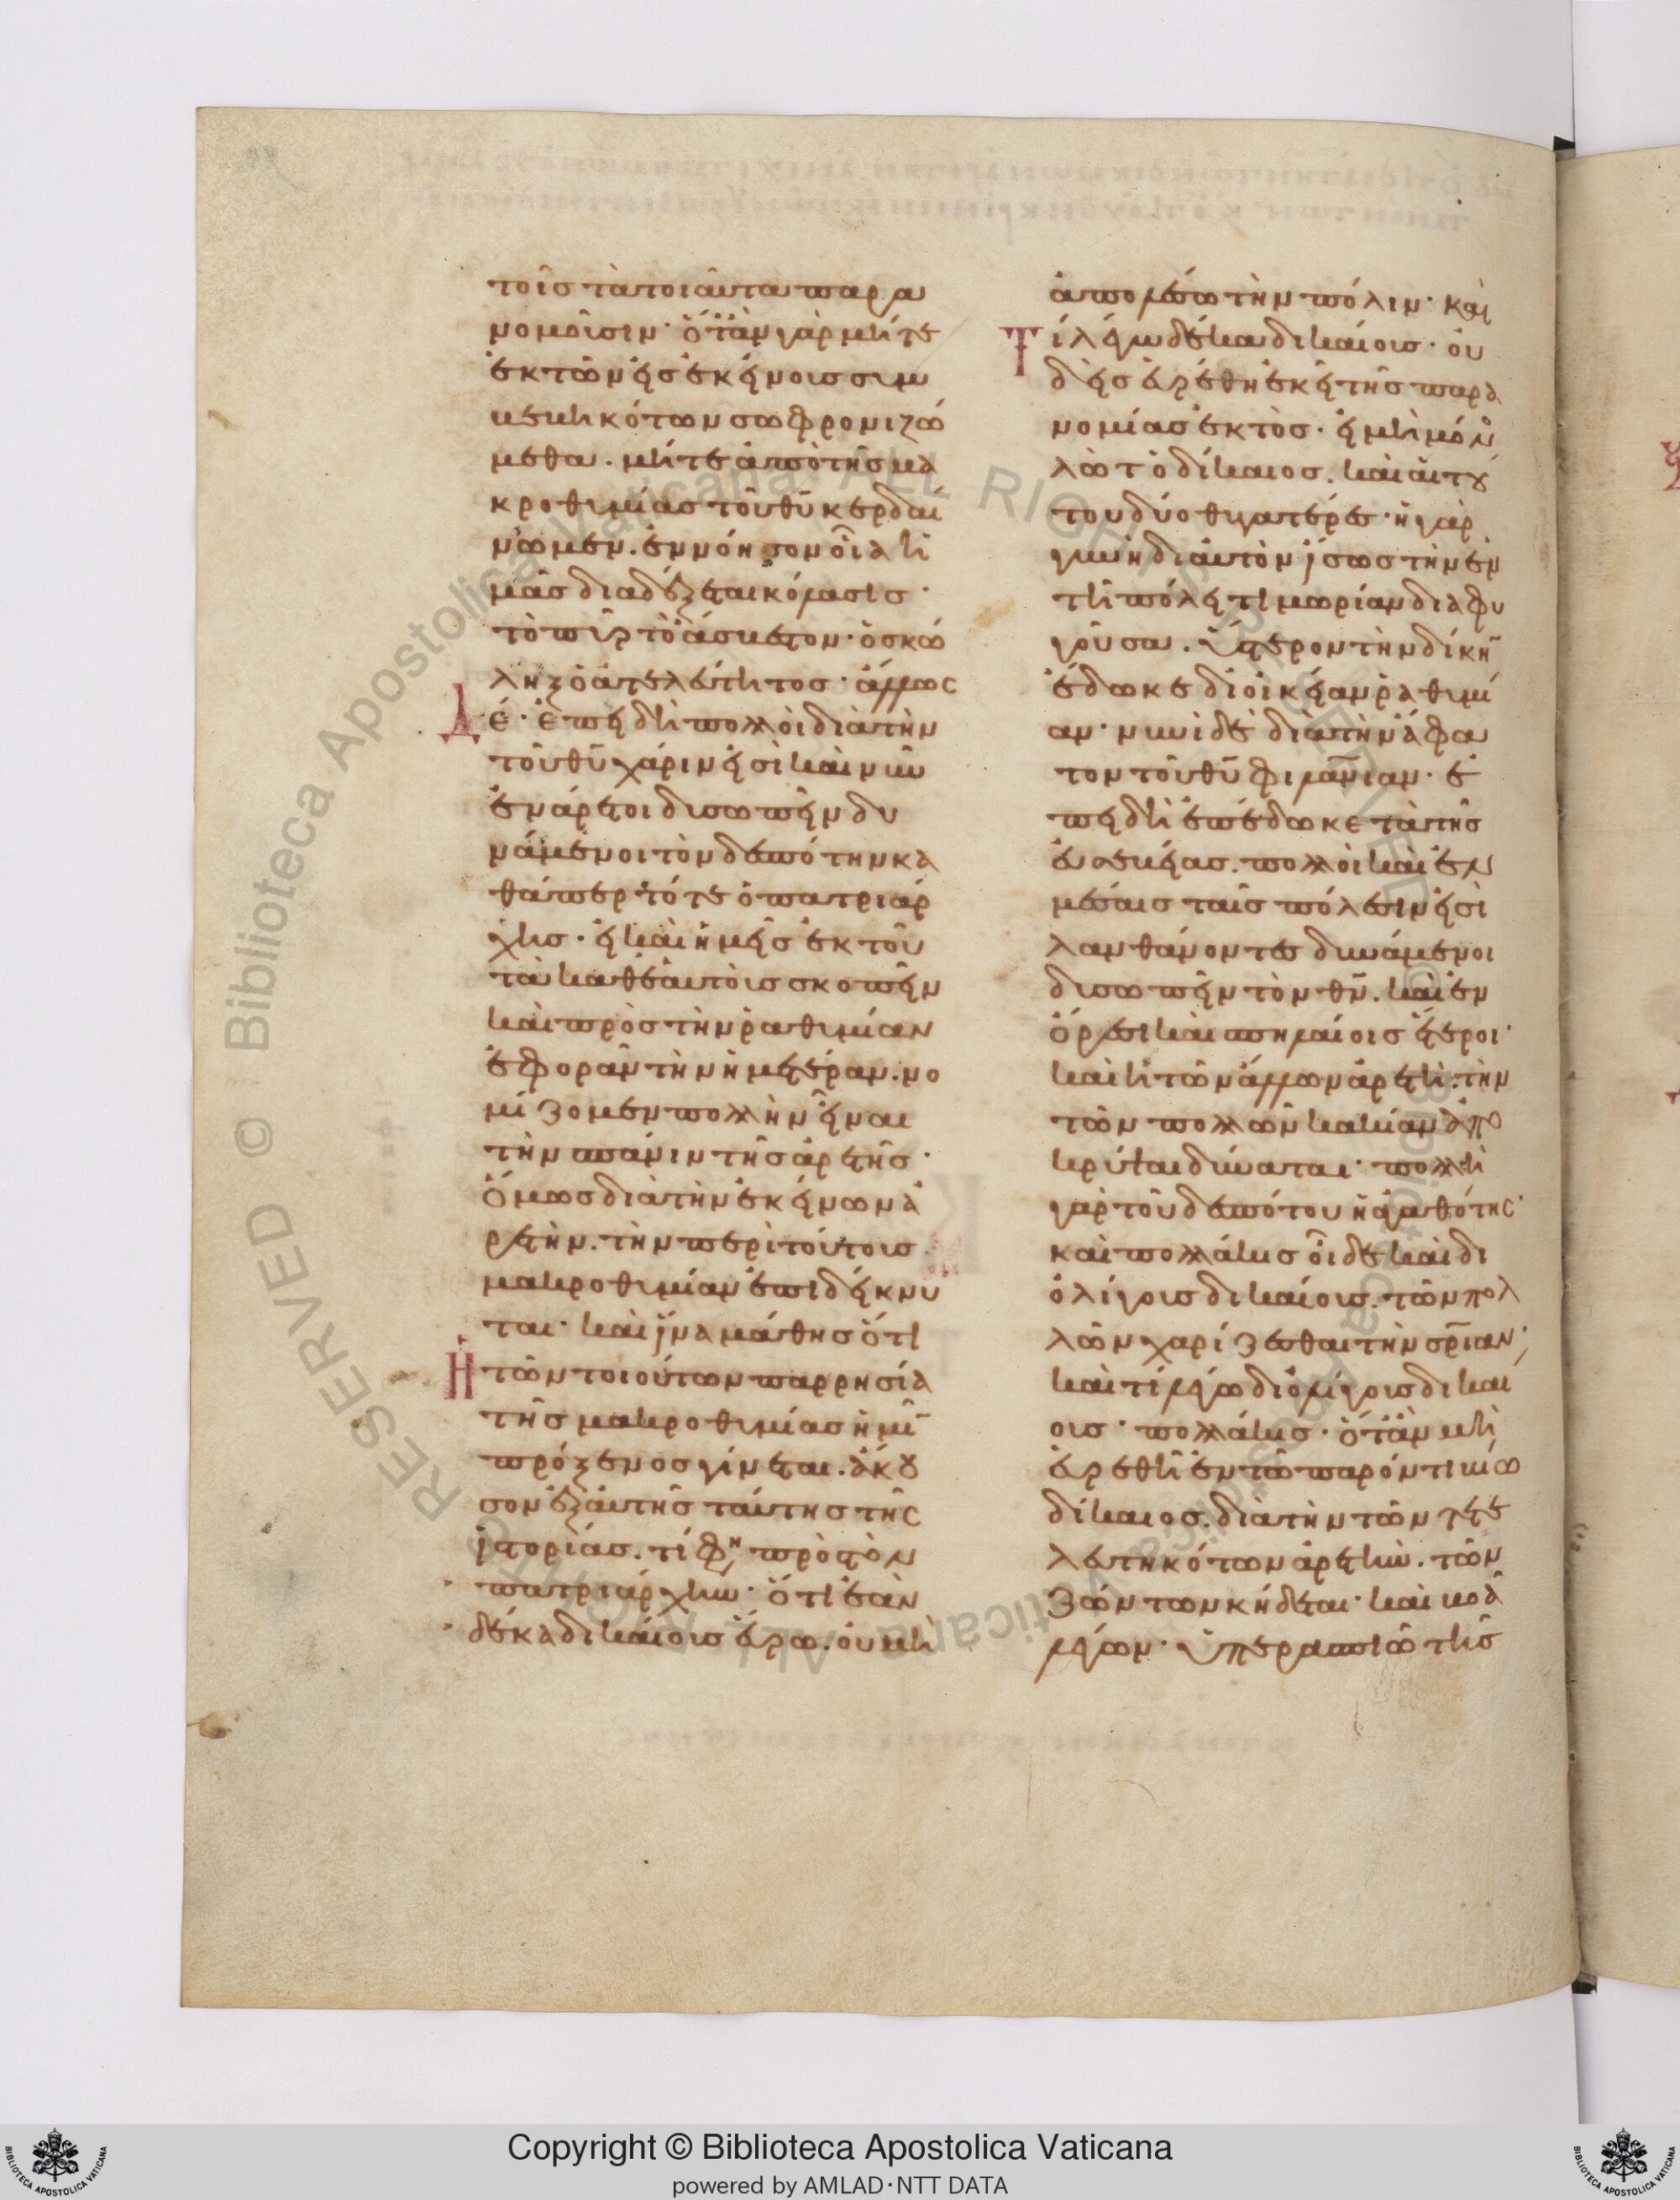 τοῖς τὰ τοιαῦτα παρα
νομοῦσιν· ὅτἂν γὰρ μήτε
ἐκ τῶν εἰς ἐκείνοις συμ
βεβηκότων σωφρονιζώ
μεθα. μήτε ἀπὸ τῆς μα
κροθυμίας τοῦ θῦ κερδαί
νωμεν. ἐννόησον οἵα ἡ
μᾶς διαδέξεται κόλασις·
τὸ πῦρ τὸ ἄσβεστον· ὁ σκώ
ληξ ὁ ἀτελεύτητος· ἄλλως
δέ· ἐπειδὴ πολλοὶ διὰ τὴν
τοῦ θῦ χάριν εἰσὶ καὶ νῦν
ἐνάρετοι δυσωπεῖν δυ
νάμενοι τὸν δεσπότην κα
θάπερ τότε ὁ πατριάρ
χης· εἰ καὶ ἡμεῖς ἐκ τοῦ
τὰ καθεαυτοὺς σκοπεῖν
καὶ πρὸς τὴν ῥαθυμίαν
ἐφορᾶν τὴν ἡμετέραν. νο
μίζομεν πολλὴν εἶναι
τὴν σπάνιν τῆς ἀρετῆς·
ὅμως διὰ τὴν ἐκείνων ἀ
ρετὴν. τὴν περὶ τούτοις
μακροθυμίαν ἐπιδείκνυ
ται· καὶ ἵνα μάθης ὅτι
ἡ τῶν τοιούτων παρρησία
τῆς μακροθυμίας ἡμῖ
πρόξενος γίνεται. ἄκου
σον ἐξ αὐτῆς ταύτης τῆς
ἱστορίας. τί φη πρὸς τὸν
πατριάρχην· ὅτι ἐὰν
δέκα δικαίοις εὕρω. οὐ μὴ
ἀπολέσω τὴν πόλιν· καὶ
τί λέγω δέκα δικαίοις· οὐ
δεὶς εὑρέθη ἐκεῖ τῆς παρα
νομίας ἐκτὸς· εἰ μὴ μόν
λὼτ ὁ δίκαιος. καὶ αἱ του
του δύο θυγατέρες· ἡ γὰρ
γυνὴ δι αὐτὸν ἴσως τὴν ἐν
τῆ πόλει τιμωρίαν διαφυ
γοῦσα. ὕστερον τὴν δίκη
ἔδωκε δι οἰκείαν ῥαθυμί
αν· νυνὶ δὲ διὰ τὴν ἄφα
τον τοῦ θῦ φιλανιαν· ἐ
πειδὴ ἐπέδωκε τὰ τῆς
εὐσεβείας. πολλοὶ καὶ ἐν
μέσαις ταῖς πόλεσιν εἰσὶ
λανθάνοντες δυνάμενοι
δυσωπεῖν τὸν θν. καὶ ἐν
ὄρεσι καὶ σπηλαίοις ἕτεροι·
καὶ ἡ τῶν ὀλίγων ἀρετὴ. τὴν
τῶν πολλῶν κακίαν ἀπο
κρύψαι δύναται· πολλὴ
γὰρ τοῦ δεσπότου ἡ ἀγαθότης·
καὶ πολλάκις οἶδε καὶ δι
ὀλίγοις δικαίοις. τῶν πολ
λῶν χαρίζεσθαι τὴν σριαν·
καὶ τί λέγω δι ὀλίγοις δικαι
οις· πολλάκις· ὅτἂν μὴ
εὑρεθῆ ἐν τῶ παρόντι βίω
δίκαιος. διὰ τὴν τῶν τετε
λευτηκότων ἀρετὴν. τῶν
ζώντων κήδεται· καὶ βοᾶ
λέγων· ὑπερασπιῶ τῆς